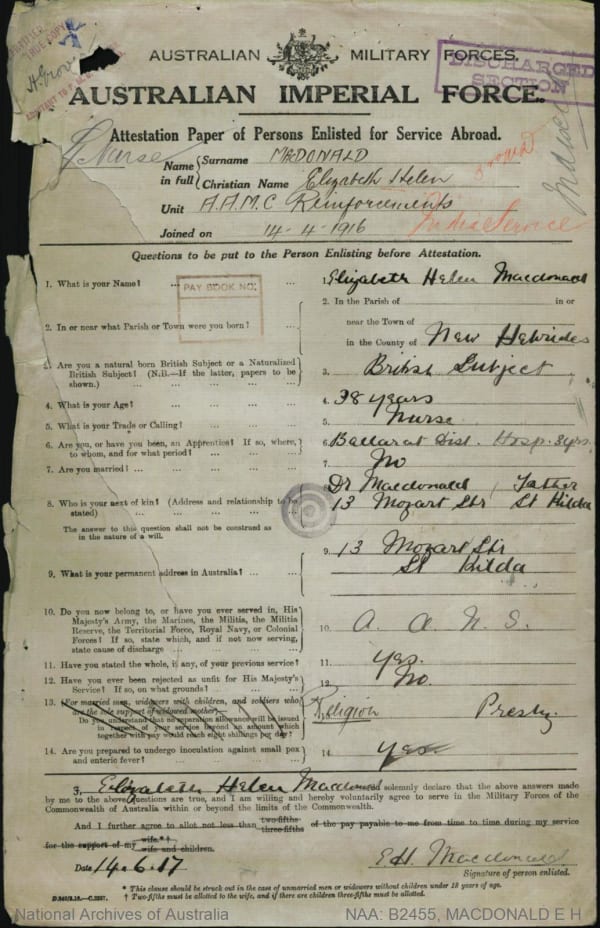 AUSTRALIAN MILITARY FORCES.
DISCHARGED
SECTION
AUSTRALIAN IMPERIAL FORCE.
Attestation Paper of Persons Enlisted for Service Abroad.
Nurse
Name in full { Surname MACDONALD
Christian Name Elizabeth Helen
Unit A.A.M.C Reinforcements
Joined on 14-4-1916
Indian Service
Questions to be put to the Person Enlisting before Attestation.
1. What is your Name? ... ... 1. Elizabeth Helen Macdonald
PAY BOOK NO:
2. In or near what Parish or Town were you born? ... 2. In the Parish of in or
near the Town of
in the County of New Hebrides
3. Are you a natural born British Subject or a Naturalized
British Subject? (N.B.—If the latter, papers to be
shown.) ... ... ... ... 3. British Subject
4. What is your Age? ... ... ... 4. 38 years
5. What is your Trade or Calling? ... ... ... 5. Nurse
6. Are you, or have you been, an Apprentice? If so, where,
to whom, and for what period? ... ... ... 6. Ballarat Dist. Hosp. 3 yrs.
7. Are you married? ... ... ... ... 7. No
8. Who is your next of kin? (Address and relationship to be
stated) ... ... ... ... 8. Dr Macdonald, Father
13 Mozart Str St Kilda
The answer to this question shall not be construed as
in the nature of a will.
9. What is your permanent address in Australia? ... ... 9. 13 Mozart Str
St Kilda
10. Do you now belong to, or have you ever served in, His
Majesty's Army, the Marines, the Militia, the Militia
Reserve, the Territorial Force, Royal Navy, or Colonial
Forces? If so, state which, and if not now serving,
state cause of discharge ... ... ... 10. A. A. N. S.
11. Have you stated the whole, if any, of your previous service? 11. Yes.
12. Have you ever been rejected as unfit for His Majesty's
Service? If so, on what grounds? ... ... 12. No
13. For married men, widowers with children, and soldiers who
are the sole support of widowed mother—
Do you understand that no separation allowance will be issued
in respect of your service beyond an amount which
together with pay would reach eight shillings per day?
Religion Presby.
14. Are you prepared to undergo inoculation against small pox
and enteric fever? ... ... ... ... 14. Yes
I, Elizabeth Helen Macdonald solemnly declare that the above answers made
by me to the above questions are true, and I am willing and hereby voluntarily agree to serve in the Military Forces of the
Commonwealth of Australia within or beyond the limits of the Commonwealth.
And I further agree to allot not less than two-fifths three-fifths of the pay payable to me from time to time during my service
for the support of my wife.*† wife and children.
Date 14.6.17
E.H. Macdonald
Signature of person enlisted.
* This clause should be struck out in the case of unmarried men or widowers without children under 18 years of age.
† Two-fifths must be allotted to the wife, and if there are children three-fifths must be allotted.
National Archives of Australia
NAA: B2455, MACDONALD E H